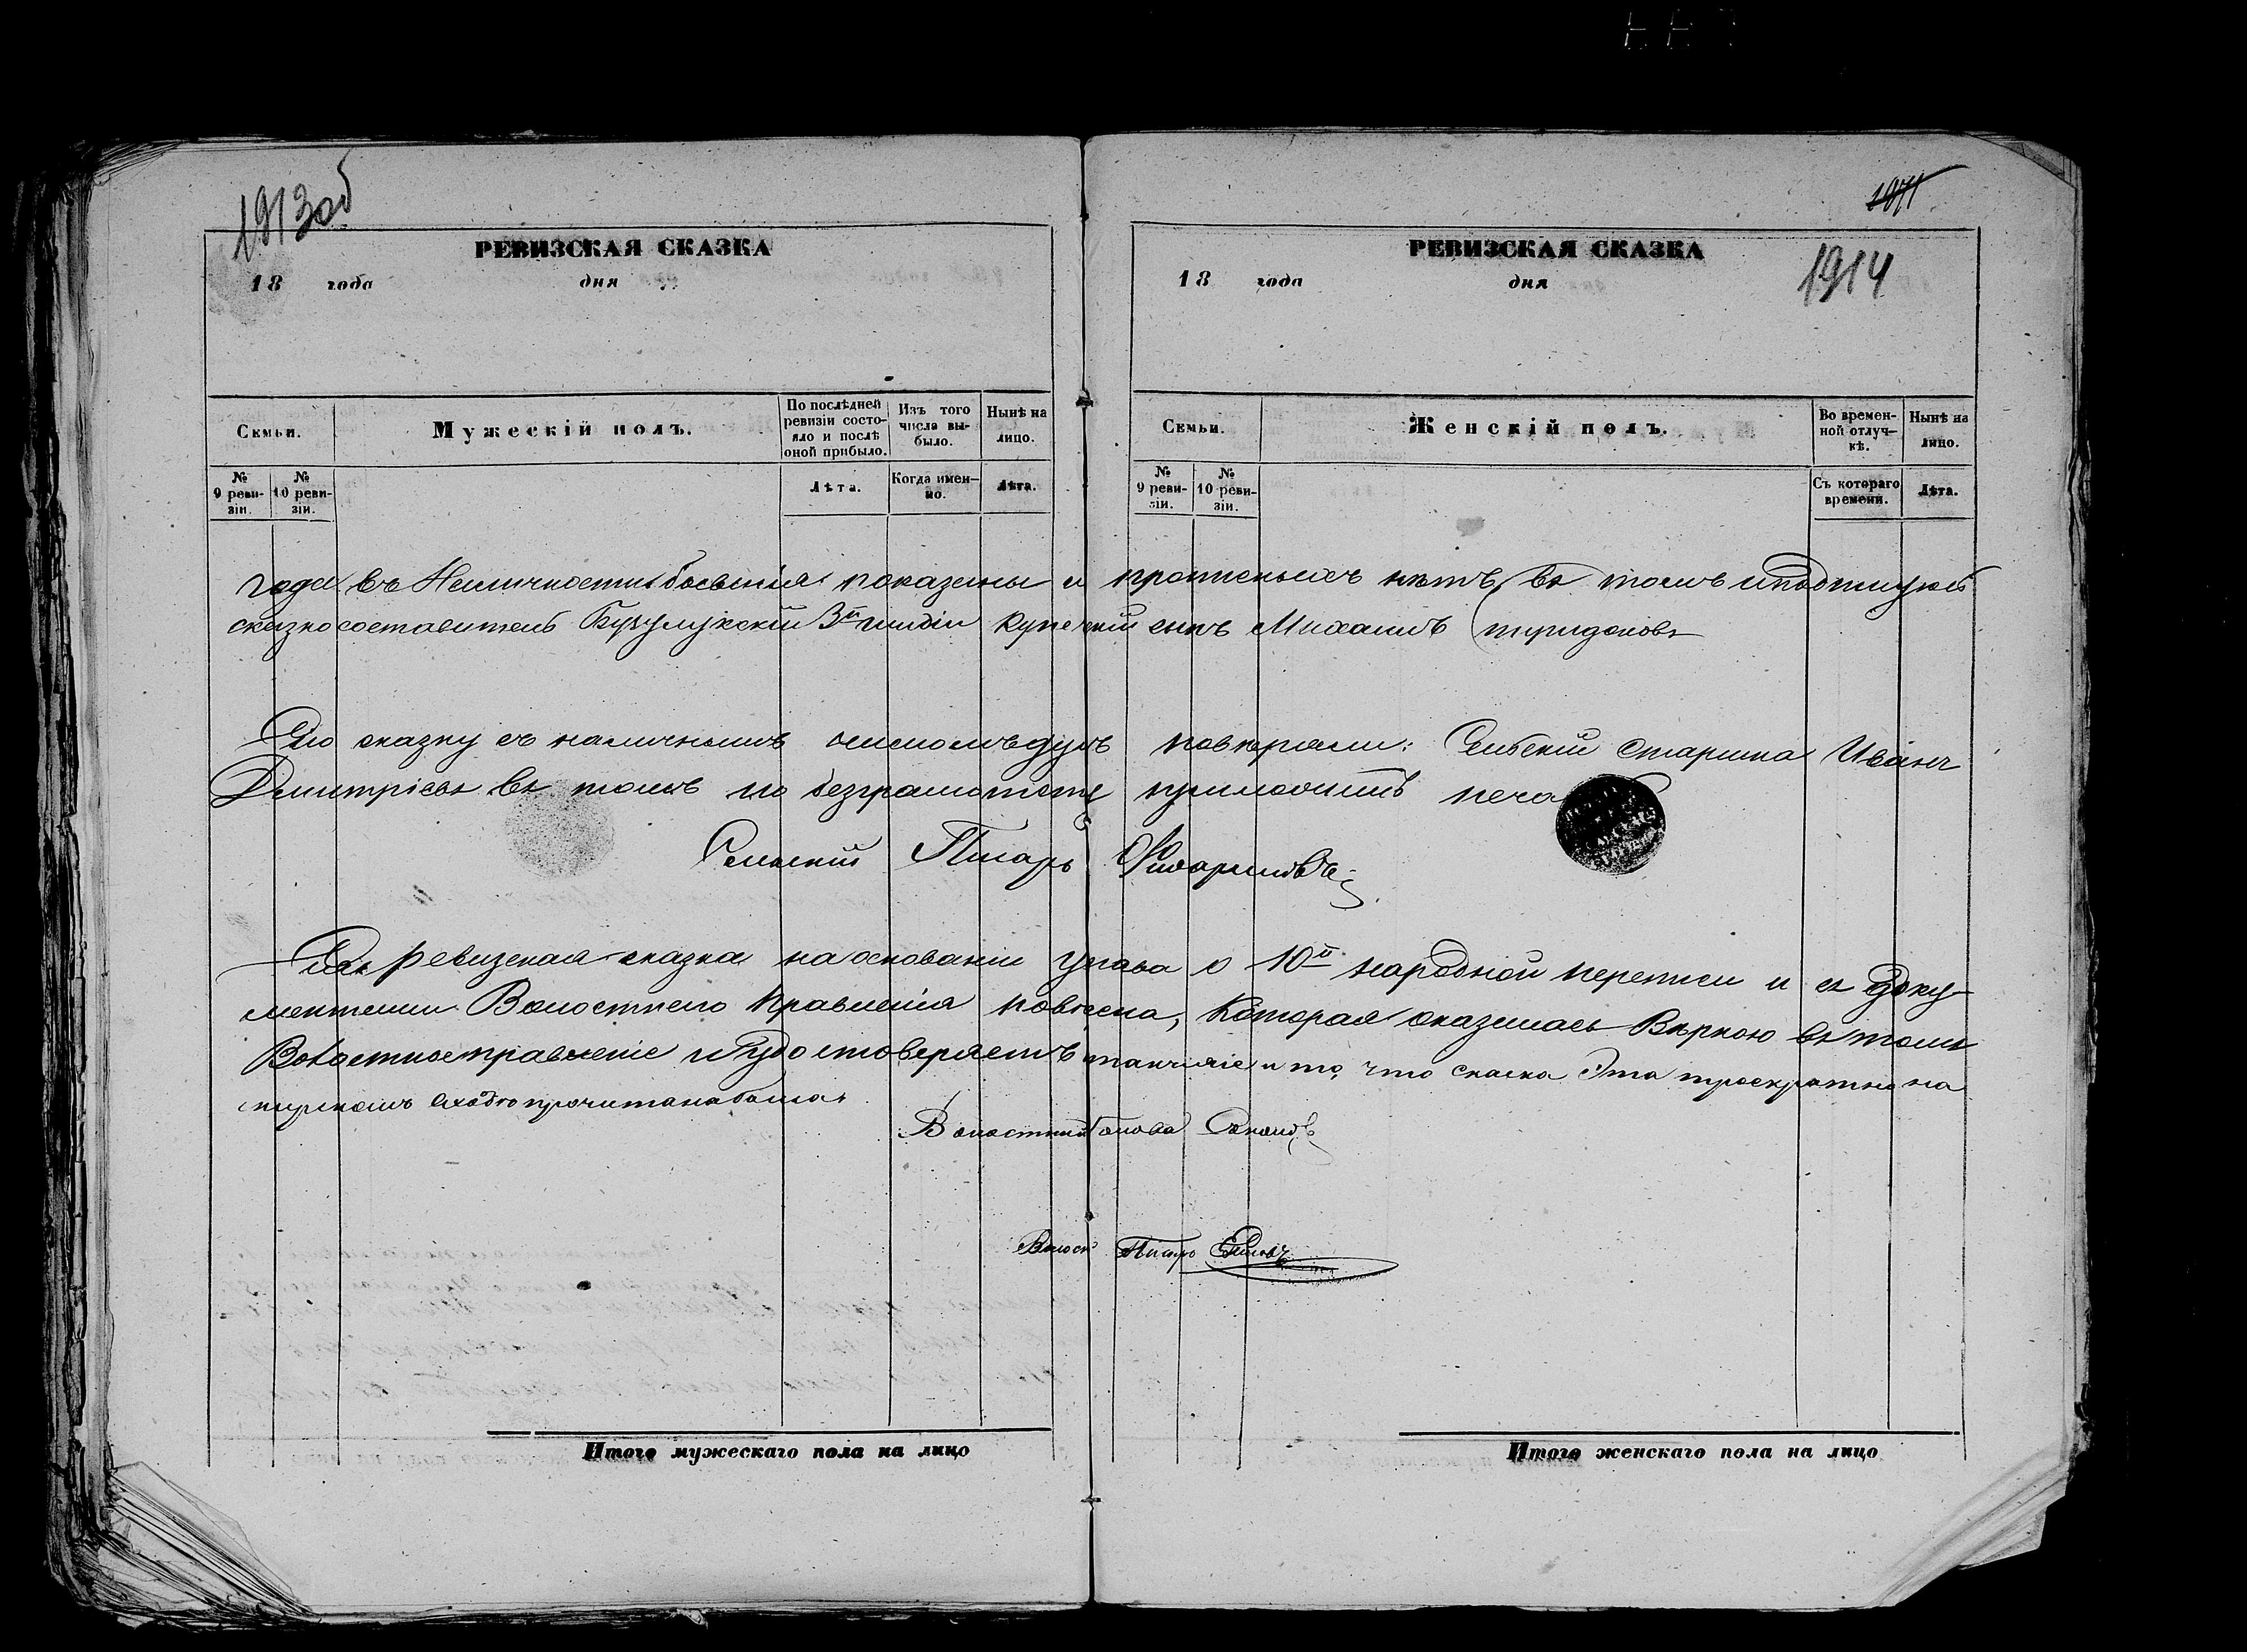 1913об
РЕВИЗСКАЯ СКАЗКА
18 года дня
Семьи.
Мужескій полъ.
По послѣдней ревизіи состояло и послѣ оной прибыло.
Изъ того числа выбыло.
Нынѣ на лицо.
№ 9 ревизіи.
№ 10 ревизіи.
Лѣта.
Когда именно.
Лѣта.
1914
РЕВИЗСКАЯ СКАЗКА
18 года дня
Семьи.
Женскій полъ.
Во временной отлучкѣ.
Нынѣ на лицо.
№ 9 ревизіи.
№ 10 ревизіи.
Съ котораго времени.
Лѣта.
года въ показаны и нѣтъ, въ томъ
сказкосоставитель Бузулукскій 3й гилдіи купеческій сынъ Михаилъ
Сію сказку съ наличнымъ числомъ душъ повѣряли: Сельскій Старшина Иванъ
Дмитріевъ въ томъ по безграмотству приложилъ печа
Сельскій Писарь
Сія ревизская сказка на основаніи устава о 10й народной переписи и съ доку-
ментами Волостнаго Правленія повѣрена, которая оказалась вѣрною въ томъ
Волостное правленіе и удостоверяетъ и то, что скаска эта троекратно на
мирскомъ сходѣ прочитана была
Волостный Голова
Волост Писарь
Итого мужескаго пола на лицо
Итого женскаго пола на лицо